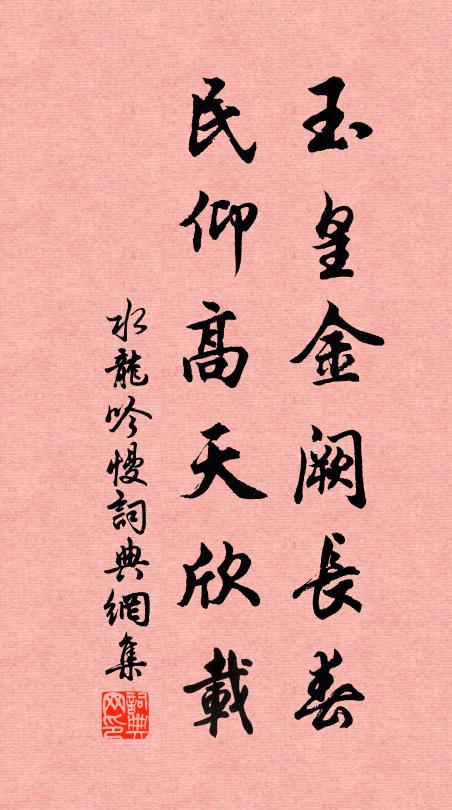 玉皇金阙長春
民仰高天欣載
水龍吟慢詞典網集
詞典网印